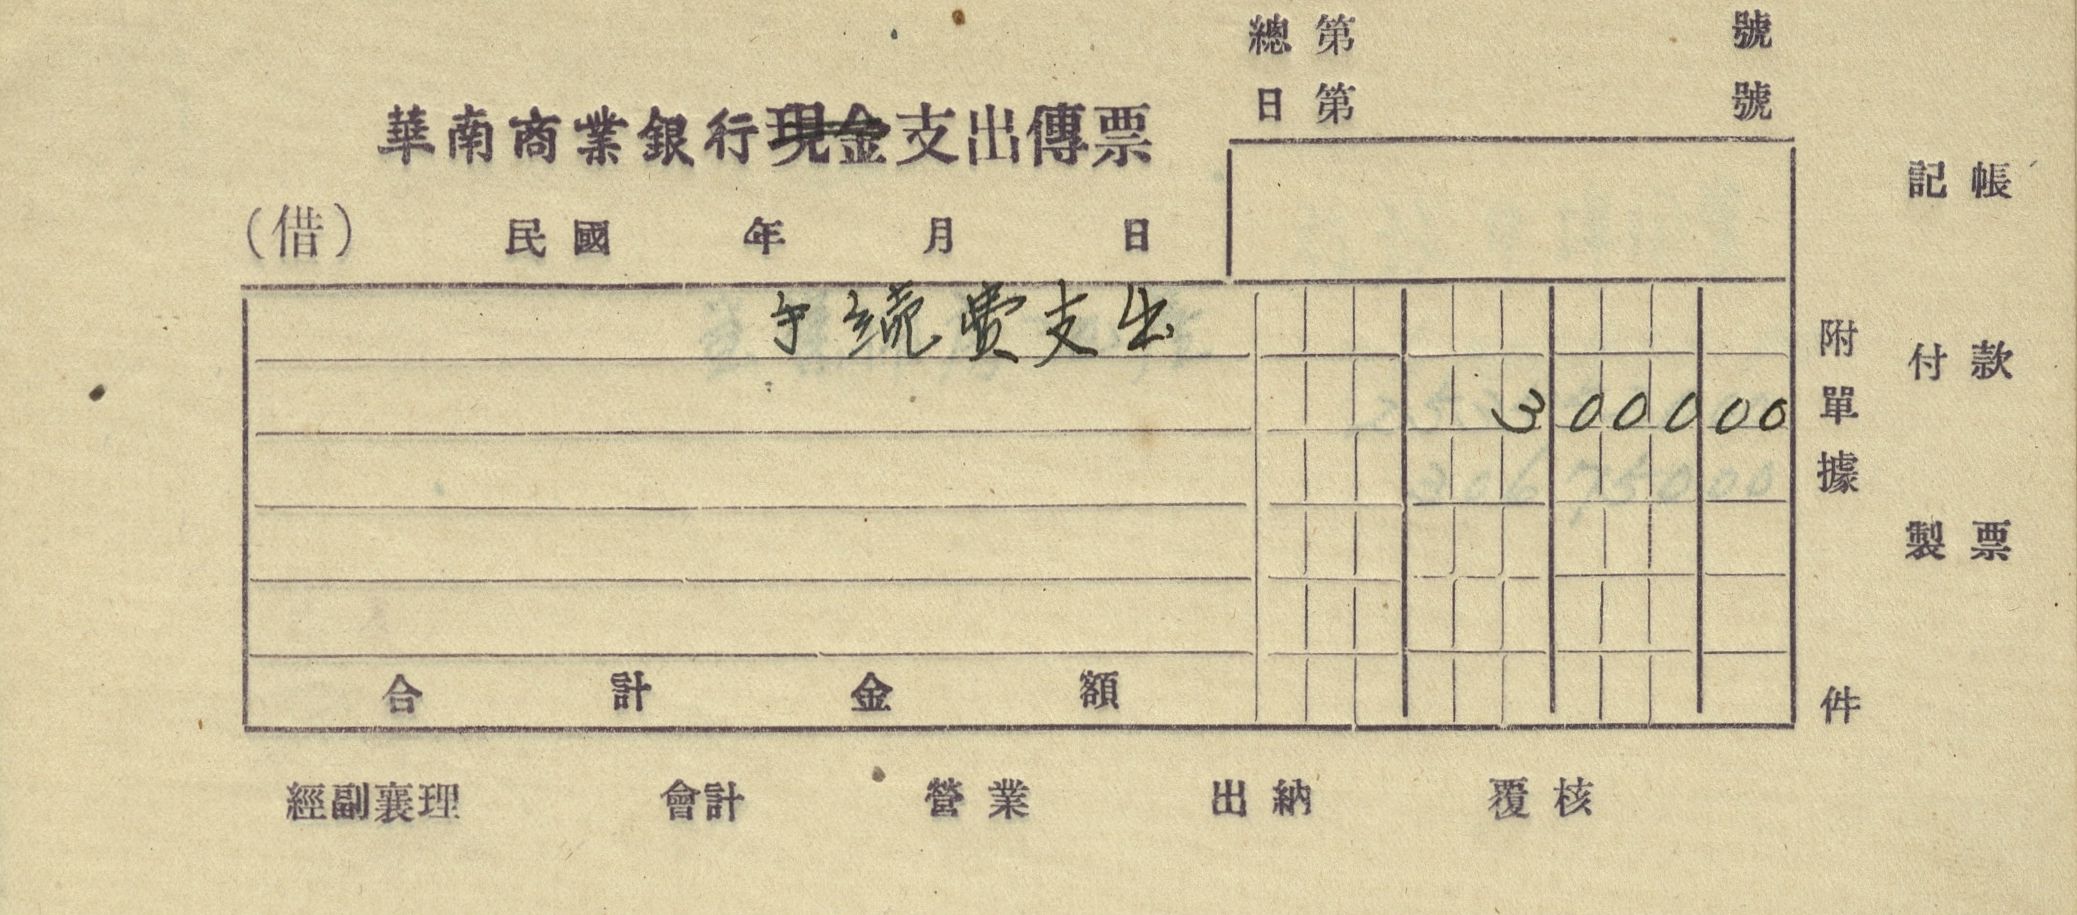 總第 號
日第 號
華南商業銀行現金支出傳票
(借) 民國 年 月 日
手続費支出
300000
合計金額
經副襄理 會計 營業 出納 覆核
附單據 件
記帳
付款
製票